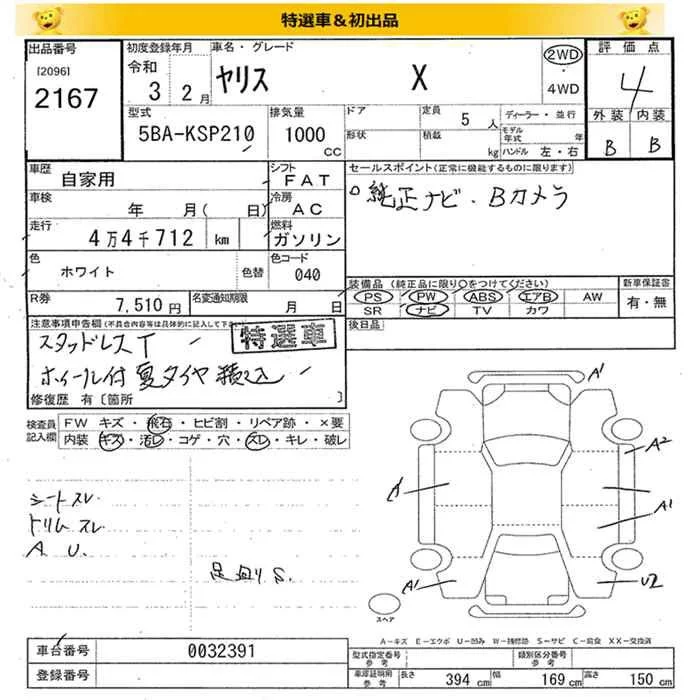 特選車＆初出品
出品番号 初度登録年月 車名・グレード 評価点
[2096] 令和 2WD
2167 3 2月 ヤリス X ・ 4
4WD
型式 排気量 ドア 定員 5人 ディーラー・並行 外装 内装
5BA-KSP210 1000 cc 形状 積載 kg モデル年式 年 B B
ハンドル 左・右
車歴 シフト セールスポイント(正常に機能するものに限ります)
自家用 FAT 純正ナビ・Bカメラ
車検 冷房
年 月( 日) AC
走行 燃料
4万4千712 km ガソリン
色 色コード
ホワイト 色替 040 装備品(純正品に限り○をつけてください) 新車保証書
R券 名変通知期限 PS PW ABS エアB AW 有・無
7,510円 月 日 SR ナビ TV カワ
注意事項申告欄(不具合内容等は具体的に記入して下さい) 後日品
スタッドレスT 特選車
ホイール付夏タイヤ積込
修復歴 有〔箇所 〕
検査員 FW キズ・飛石・ヒビ割・リペア跡・×要
記入欄 内装 キズ・汚レ・コゲ・穴・スレ・キレ・破レ
A1
A2
シートスレ A A1
トリムスレ
A U.
足廻りS. A1 U2
スペア
A－キズ E－エクボ U－凹み W－補修跡 S－サビ C－腐食 XX－交換済
車台番号 0032391 型式指定番号 参考 類別区分番号 参考
登録番号 車庫証明用 参考 長さ 394 cm 幅 169 cm 高さ 150 cm